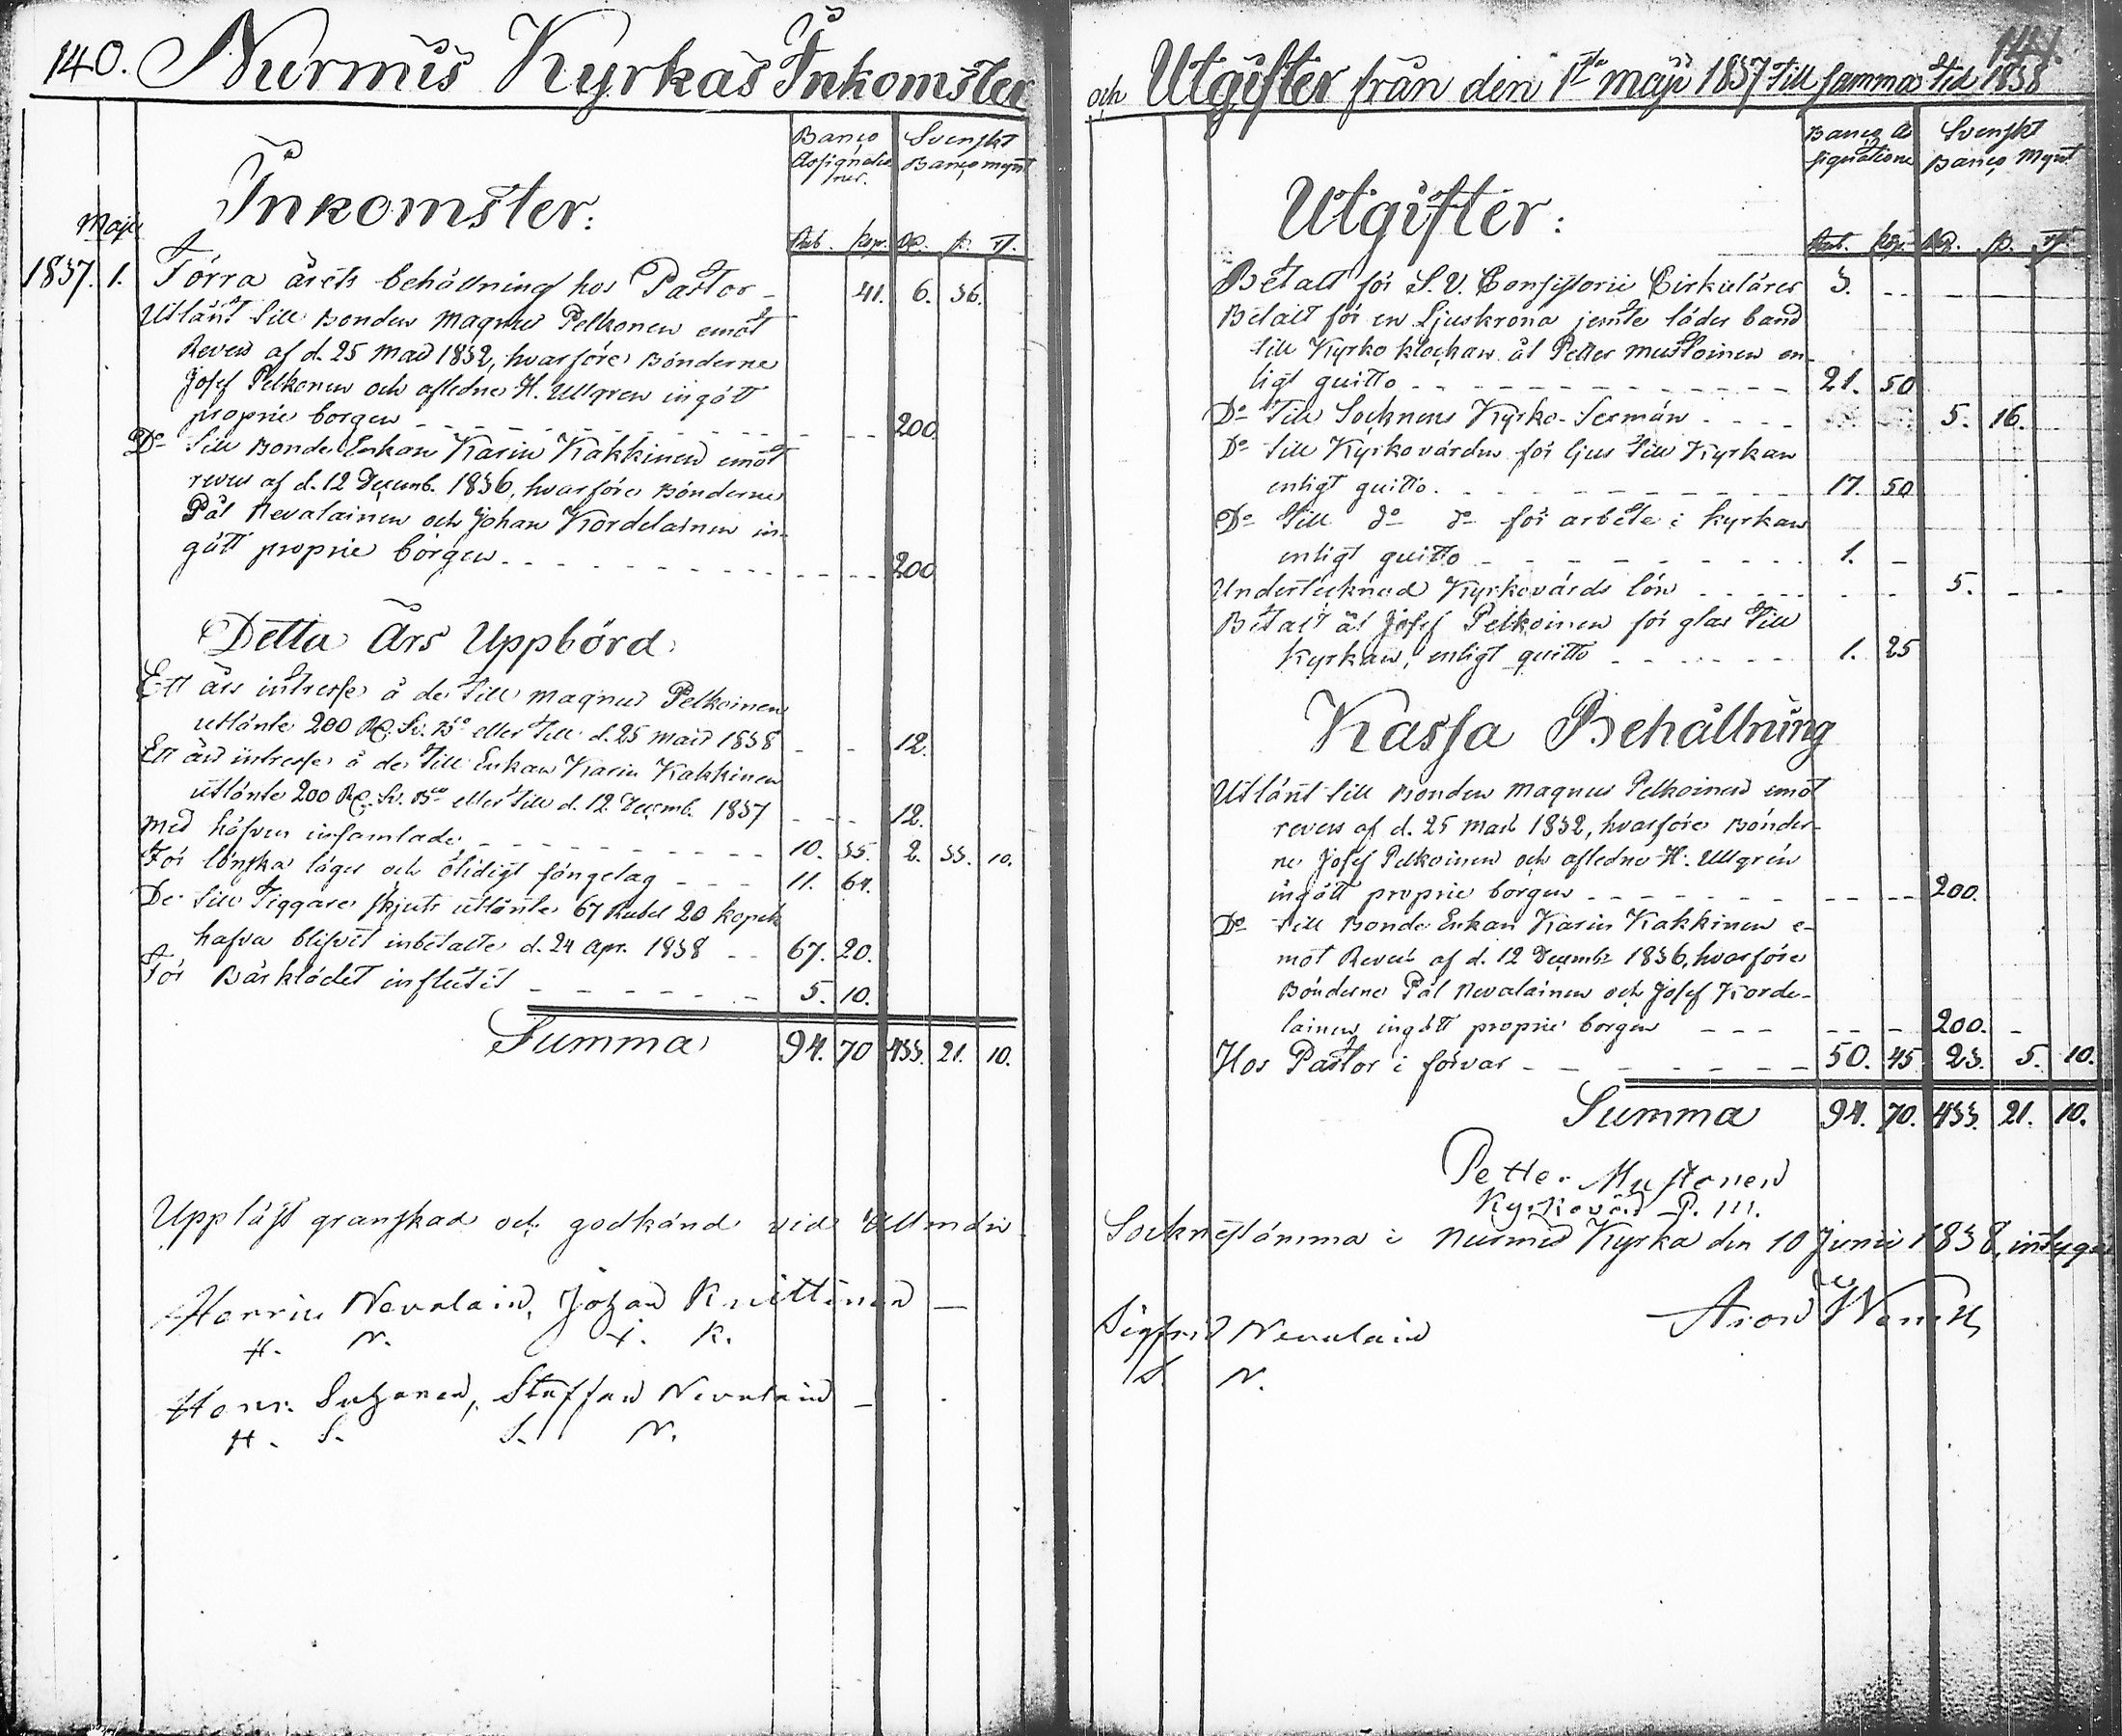 140. Nurmis Kyrkas Inkomster
Banco Assignationer. Svenskt Banco mynt
Inkomster:
Maji
Rub. Kop. RD. ß. rst.
1837. 1. Förra årets behållning hos Pastor - 41. 6. 36.
Utlånt till Bonden Magnus Pelkonen emot
Revers af d. 25 Mars 1832, hvarföre Bönderne
Josef Pelkonen och afledne H. Ullgren ingått
proprie borgen - - - 200.
Do till Bonde Enkan Karin Kakkinen emot
revers af d. 12 Decemb. 1836, hvarföre Bönderne
Pål Nevalainen och Johan Kordelainen in-
gått proprie borgen - - - 200
Detta Års Uppbörd
Ett års intresse å de till Magnus Pelkoinen
utlånte 200 RD. Sv. Bco eller till d. 25 Mars 1838 - - 12.
Ett års intresse å de till Enkan Karin Kakkinen
utlånte 200 RD. Sv. Bco eller till d. 12 Decemb. 1837 - - 12.
Med håfven insamlade - - - 10. 35. 2. 33. 10.
För lönska läger och otidigt sängelag - - - 11. 64.
De till Tiggare skjuts utlånte 67 Rubel 20 kopek
hafva blifvit inbetalte d. 24 Apr. 1838 - - 67. 20.
För Bårklädet influtit - - - 5. 10.
Summa 94. 70 433. 21. 10.
Uppläst granskad och godkänd vid Allmän
Henric Nevalain, Johan Kuittinen -
H. N. J. K.
Henr. Suhonen, Staffan Nevalain -
H. S. S. N.
141.
och Utgifter från den 1sta Maji 1837 till samma tid 1838
Banco Assignationer Svenskt Banco Mynt
Utgifter:
Rub. Kop. RD. ß. rst.
Betalt för S. V. Consistorii Cirkulärer 3. - -
Betalt för en Ljuskrona jemte läder band
till Kyrko klockan åt Petter Mustoinen en-
ligt quitto - - - 21. 50
Do till Socknens Kyrko-Sexmän - - - 5. 16.
Do till Kyrkovärden för ljus till Kyrkan
enligt quitto. - - - 17. 50
Do till do do för arbete i kyrkan
enligt quitto - - - 1. -
Undertecknad Kyrkovärds lön - - - 5. - -
Betalt åt Josef Pelkoinen för glas till
Kyrkan, enligt quitto - - - 1. 25
Kassa Behållning
Utlånt till Bonden Magnus Pelkoinen emot
revers af d. 25 Mars 1832, hvarföre Bönder-
ne Josef Pelkoinen och afledne H. Ullgren
ingått proprie borgen - - - 200.
Do till Bonde Enkan Karin Kakkinen e-
mot Revers af d. 12 Decembr 1836, hvarföre
Bönderne Pål Nevalainen och Josef Korde-
lainen ingått proprie borgen - - - 200. -
Hos Pastor i förvar - - - 50. 45 23. 5. 10.
Summa 94. 70. 433. 21. 10.
Petter Mustonen
Kyrkovärd P. M.
Socknestämma i Nurmis Kyrka den 10 Junii 1838, intygar
Sigfrid Nevalain
S. N.